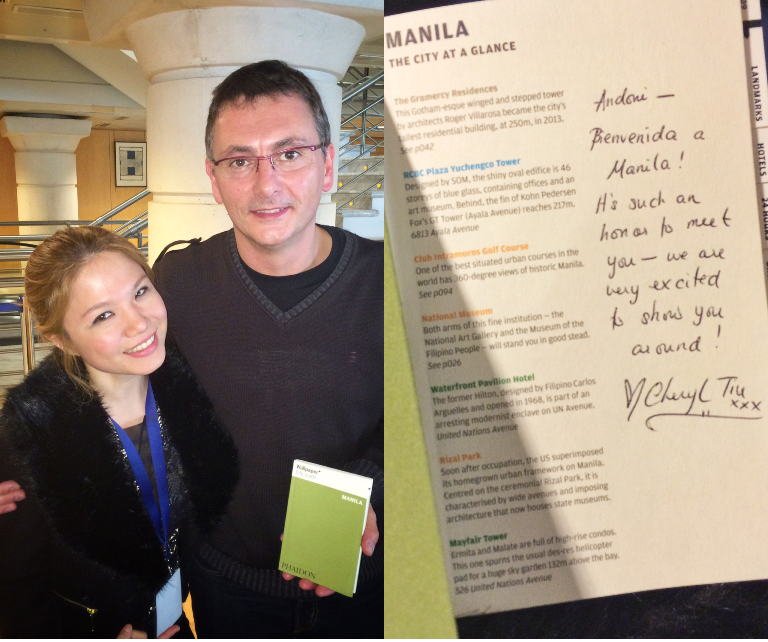 Wallpaper*
City Guide
MANILA
PHAIDON
MANILA
THE CITY AT A GLANCE
The Gramercy Residences
This Gotham-esque winged and stepped tower
by architects Roger Villarosa became the city's
tallest residential building, at 250m, in 2013.
See p042
RCBC Plaza Yuchengco Tower
Designed by SOM, the shiny oval edifice is 46
storeys of blue glass, containing offices and an
art museum. Behind, the fin of Kohn Pedersen
Fox's GT Tower (Ayala Avenue) reaches 217m.
6813 Ayala Avenue
Club Intramuros Golf Course
One of the best situated urban courses in the
world has 360-degree views of historic Manila.
See p094
National Museum
Both arms of this fine institution – the
National Art Gallery and the Museum of the
Filipino People – will stand you in good stead.
See p026
Waterfront Pavilion Hotel
The former Hilton, designed by Filipino Carlos
Arguelles and opened in 1968, is part of an
arresting modernist enclave on UN Avenue.
United Nations Avenue
Rizal Park
Soon after occupation, the US superimposed
its homegrown urban framework on Manila.
Centred on the ceremonial Rizal Park, it is
characterised by wide avenues and imposing
architecture that now houses state museums.
Mayfair Tower
Ermita and Malate are full of high-rise condos.
This one spurns the usual des-res helicopter
pad for a huge sky garden 132m above the bay.
526 United Nations Avenue
Andoni —
Bienvenida a
Manila!
It's such an
honor to meet
you — we are
very excited
to show you
around!
Cheryl Tiu
xxx
LANDMARKS
HOTELS
24 HOURS